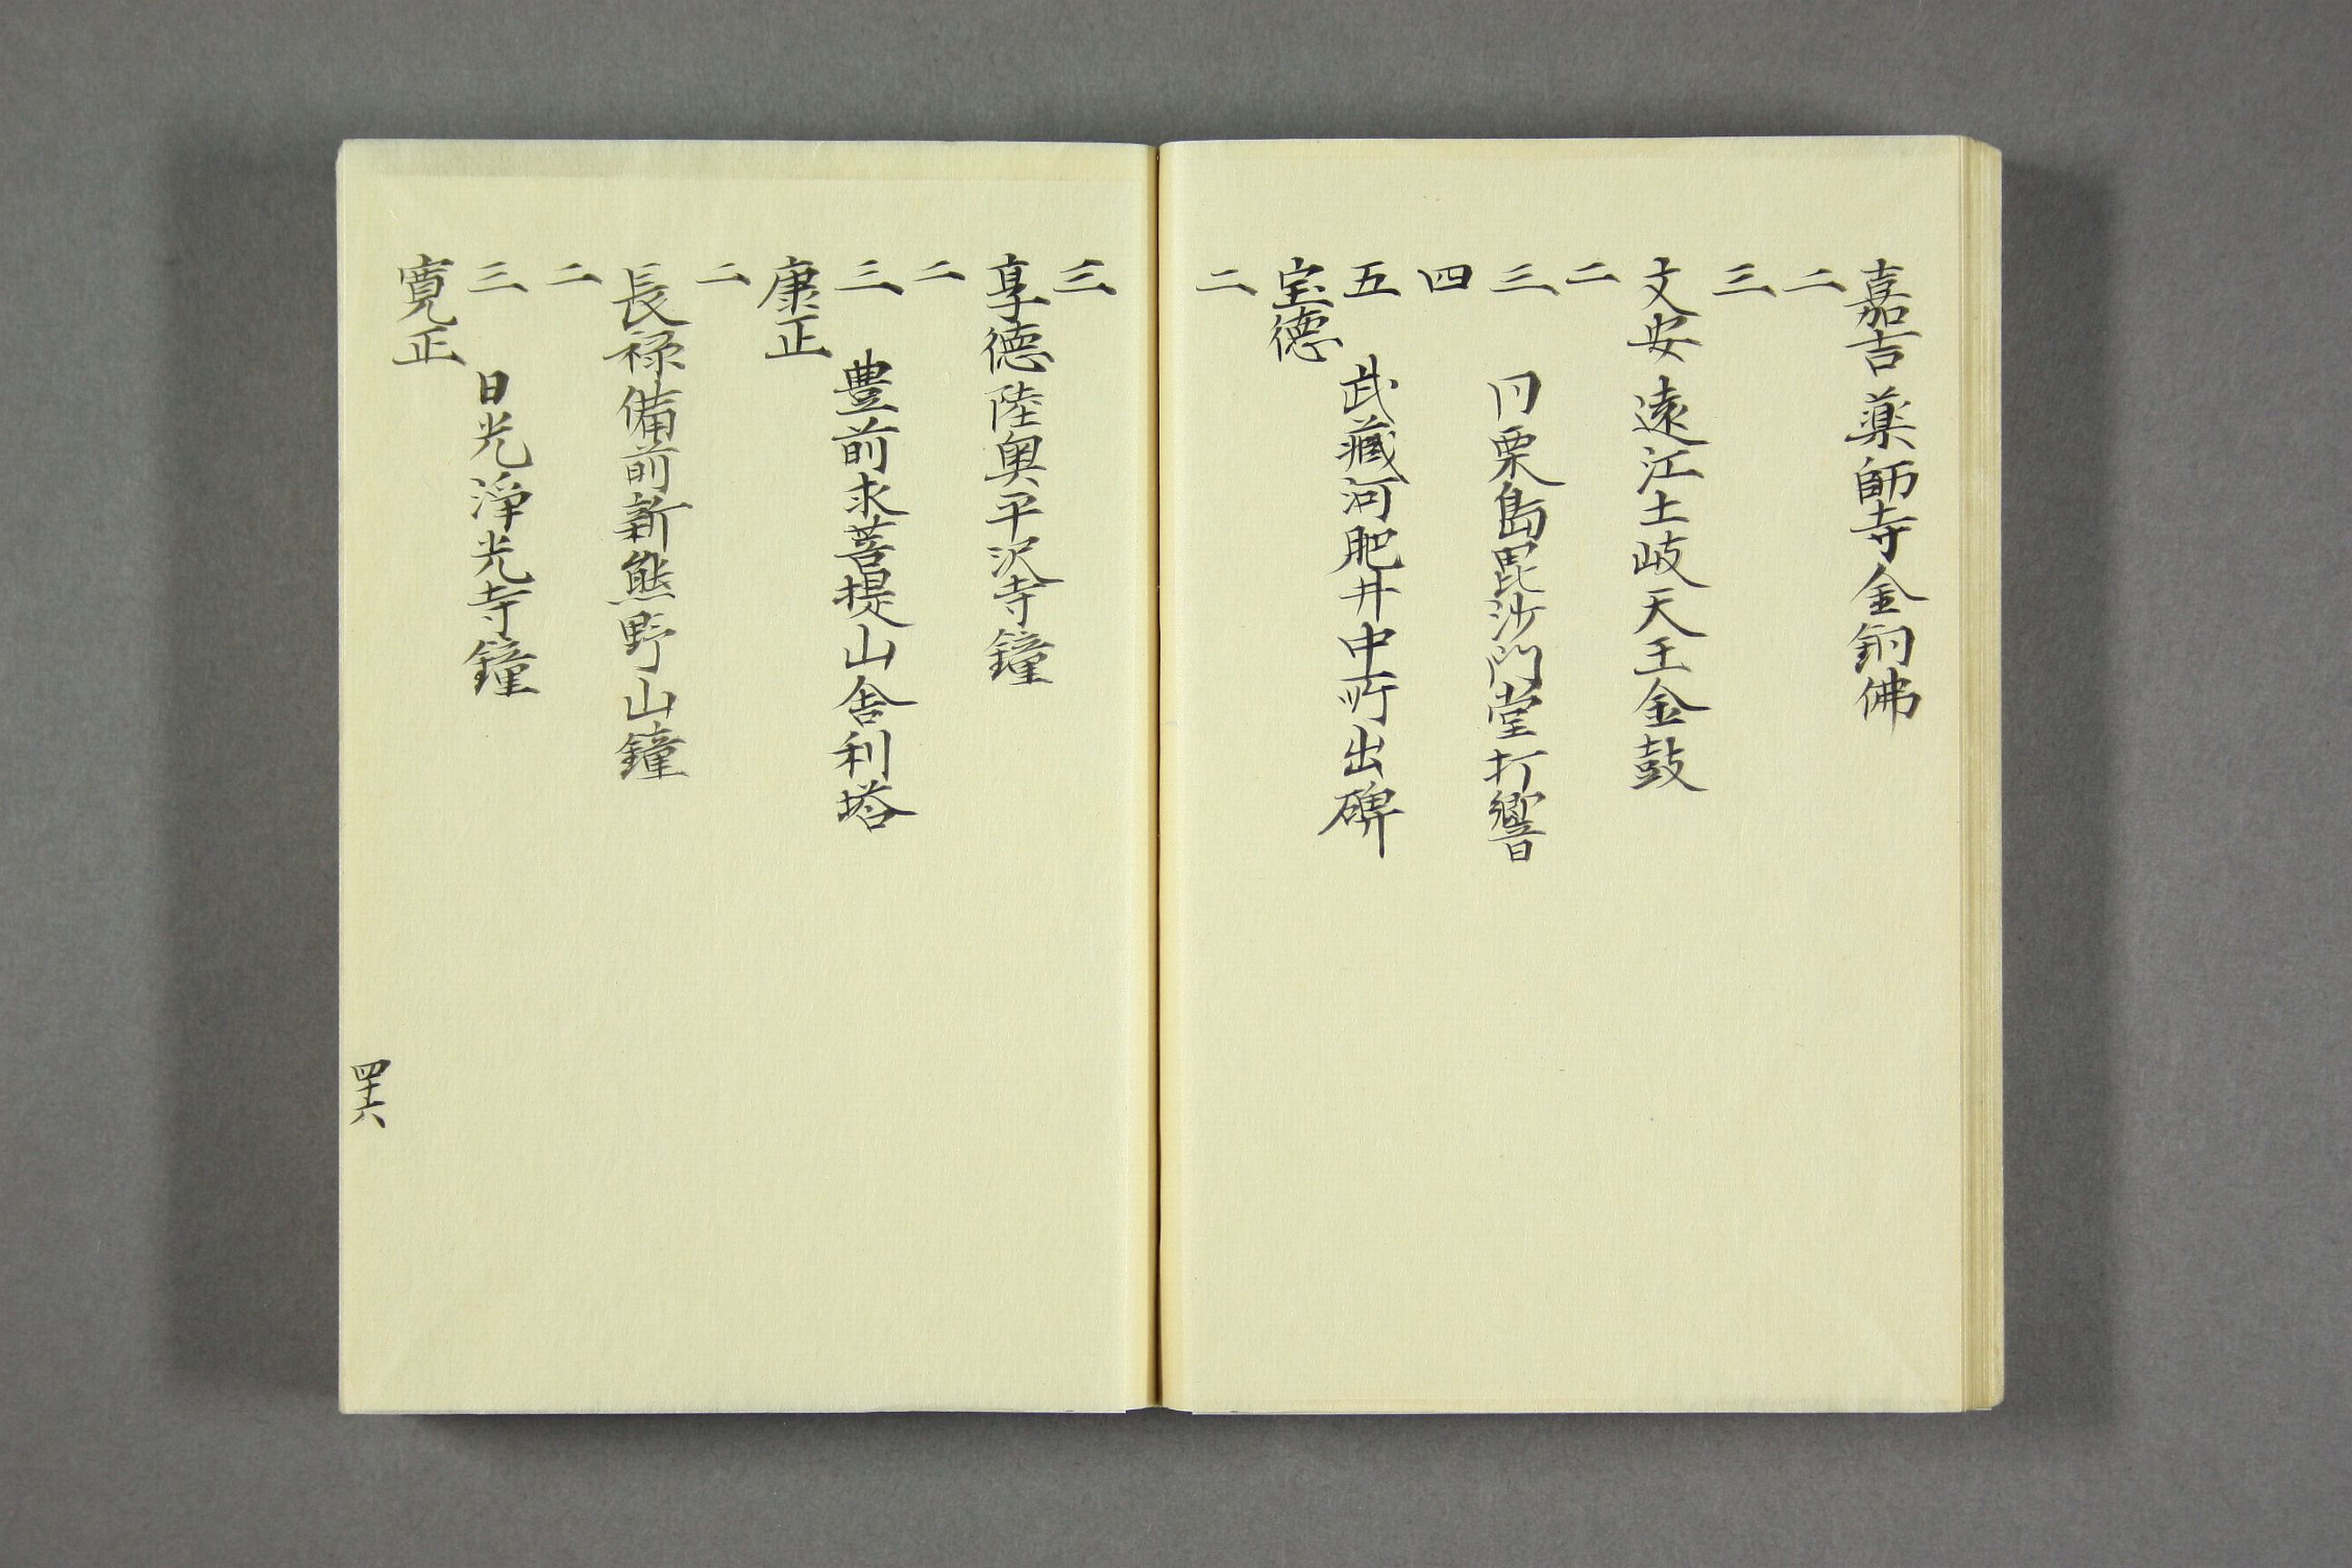 嘉吉 薬師寺金銅佛
二
三
文安 遠江土岐天王金鼓
二
三 円栗島毘沙門堂打響
四
五 武藏河肥井中所出碑
宝徳
二
三
享徳 陸奥平沢寺鐘
二
三 豊前求菩提山舎利塔
康正
二
長禄 備前新熊野山鐘
二
三 日光淨光寺鐘
寛正
四十六